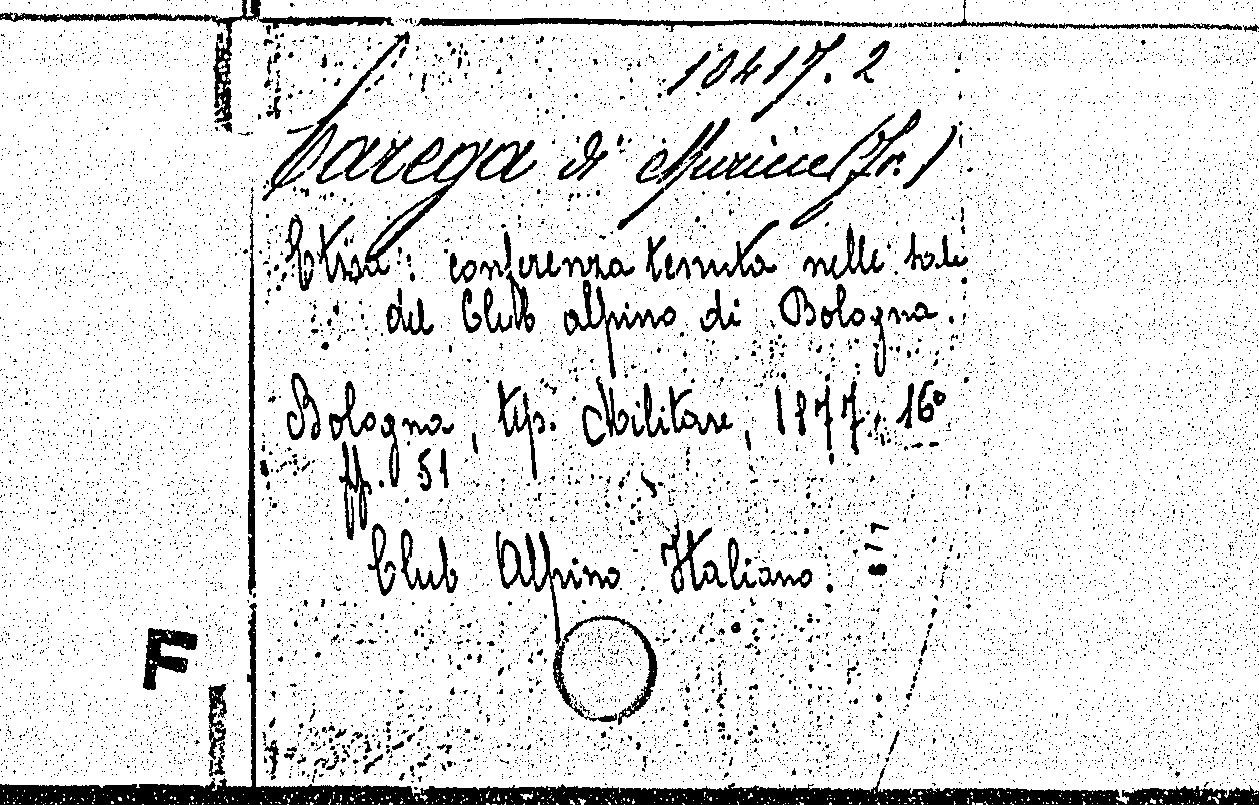 10417.2
Carega di Muricce (Fr.)
Etna: conferenza tenuta nelle sale
del Club alpino di Bologna.
Bologna, tip. Militare, 1877, 16°
pp. 51
Club Alpino Italiano.
677
F